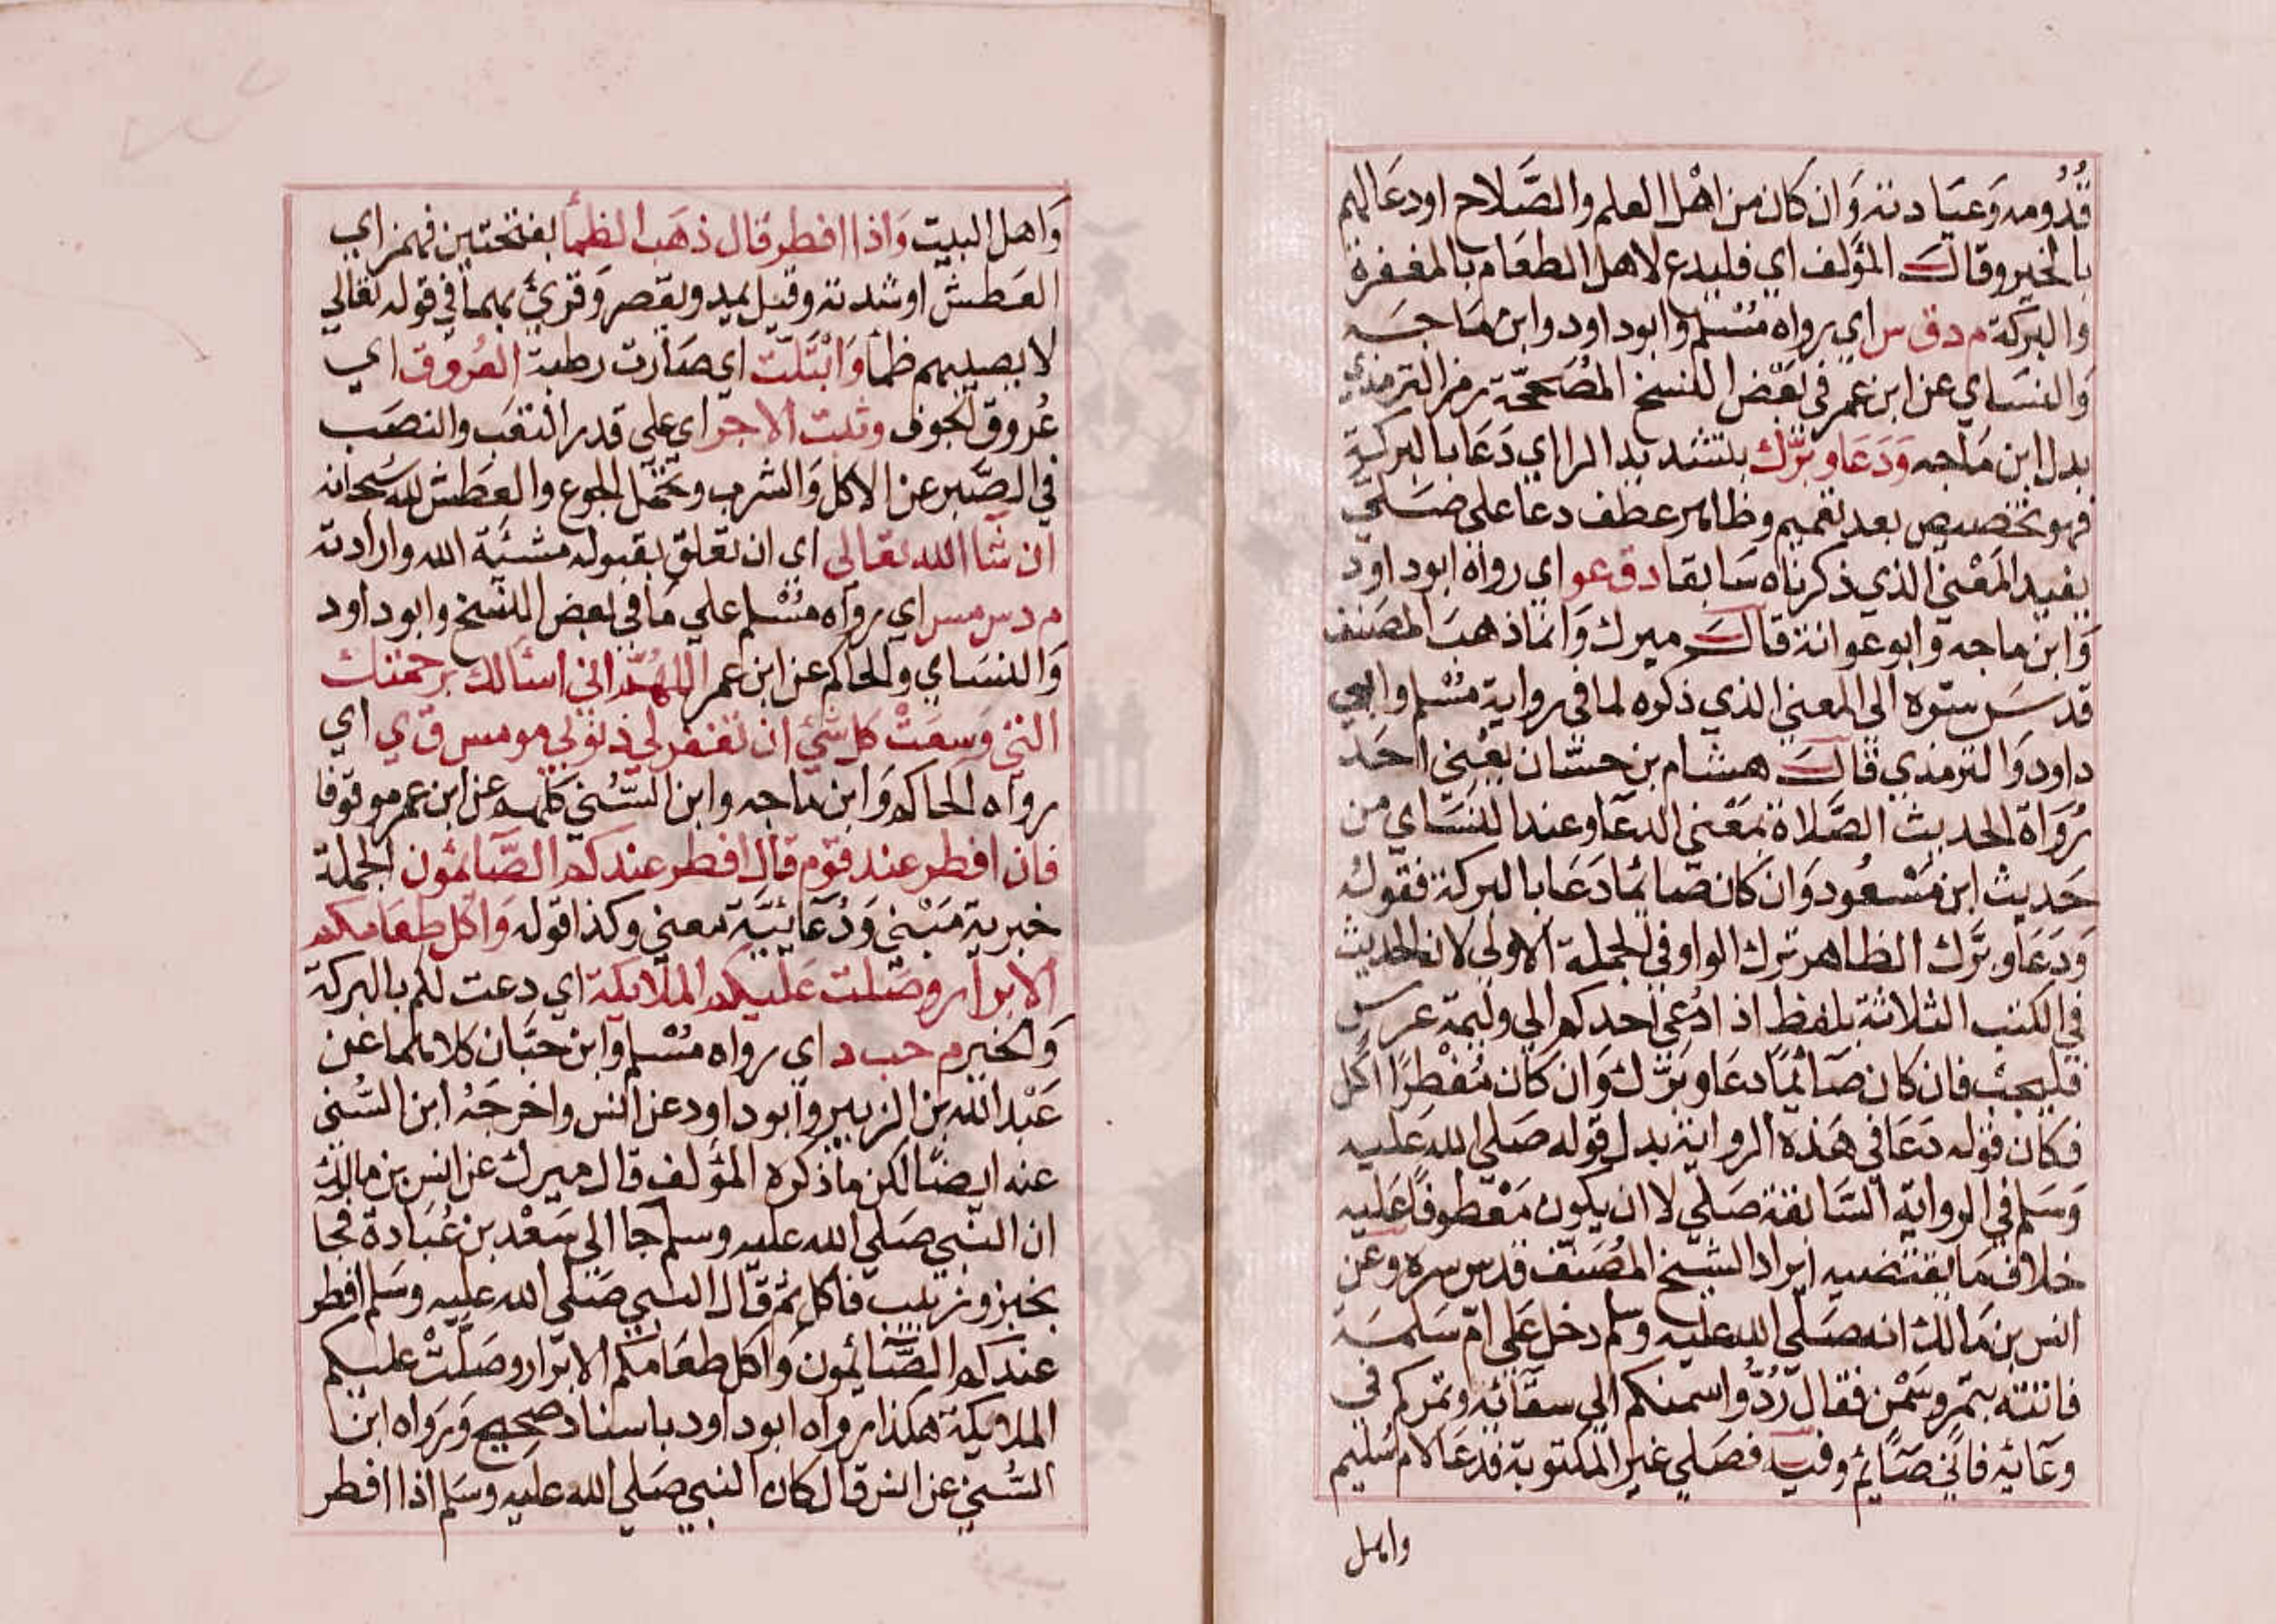 قُدُومه وَعيَادته وَان كان من اهْل العلم والصَّلاح اودعَالهم
بالخير وقالَ المؤلف اي فليدع لاهل الطعَام بالمغفرة
والبركة م د ق س اي رواه مُسْلم وابوداود وابن مَاجَه
وَالنسَاي عن ابن عمر في بَعْض النسخ المُصَحَّحَة رمز الترمذي
بدل ابن مَاجه وَدَعَا وبَرَّك بتشديد الرااي دَعَا بالبركة
فهو تخصيص بعد تعميم وظاهر عطف دعا على صَلي
يفيد المَعْنيَ الذي ذكرناه سَابقا د ق عو اي رواه ابوداود
وَابن ماجه وابوعوانة قالَ ميرك وَانما ذهبَ المصَنف
قدسَ ستره الي المعني الذي ذكره لما في رواية مسْلم وابي
داود وَالترمذي قالَ هشام بن حسَّان يعْني احَد
رُوَاة الحديث الصَّلاة بمَعْني الدعَا وعند النسَاي من
حَديث ابن مَسْعود وَان كان صَائما دَعَا بالبركة فقوله
وَدَعَا وبَرَّك الظاهر ترك الواو في الجملة الاولي لان الحديث
في الكتب الثلاثة بلفظ اذا دُعي احدكم الي وليمة عرس
فليجب فان كان صَآئمًا دعَا وبَرَّك وَان كان مُفْطرًا اكل
فكان قوله دَعَا في هَذه الرواية بدل قوله صَلي الله عَليه
وَسَلم في الرواية السَّابقة صَلي لا ان يكون مَعْطوفًا عَليه
خلاف مَا يقتضيه ايراد الشيخ المُصَنف قدس سره وعن
انس بن مَالك انه صَلي الله عليه وسلم دخل عَلي امّ سَلمَة
فاتته بتَمْر وسَمْن فقال رُدُّوا سمنكم الي سقآئه وتمركم في
وعَائه فاني صَآئم وفيه فصَلي غير المكتوبة فدعَا لام سُليم
واهل
وَاهل البيت وَاذا افطر قال ذهَب الظمأ بفتحتين فهمز اي
العَطش اوشدته وقيل يمد ويقصر وَقرئ بهما في قوله تعالي
لا يصيبهم ظمأ وَابْتَلَّت اي صَارت رطبة العُروق اي
عُروق الجوف وثبت الاجر اي علي قدر التعَب والنصَب
في الصَّبر عن الاكل وَالشرب وتحَمّل الجوع والعطش لله سُبحانه
ان شَا الله تعَالي اي ان تعلق بقبوله مشيَّة الله وارادته
م د س مس اي رواه مُسْلم علي مَا في بعض النسخ وابوداود
وَالنسَاي والحاكم عن ابن عمر اللهُمَّ اني اسألك برحمَتك
التي وَسعَتْ كل شيْ ان تغفر لي ذنوبي مو مس ق ي اي
رواه الحاكم وَابن ماجه وابن السُّني كلهم عن ابن عمر موقوفا
فان افطر عند قوْم قال افطر عندكم الصَّآئمون الجملة
خبرية مَبْني وَدُعَائيَّة معني وكذا قوله وَاكل طعَامكم
الابرار وصَلت عَليكم الملائكة اي دعت لكم بالبركة
وَالخير م حب د اي رواه مُسْلم وابن حبَّان كلاهما عن
عَبْد الله بن الزبير وابوداود عن انس واخرجَهُ ابن السُّني
عنه ايضًا لكن ما ذكره المؤلف قال ميرك عن انس بن مالك
ان النبي صَلي الله عليه وسلم جَا الي سَعْد بن عُبَادة فجَا
بخبز وزيت فاكل ثم قال النبي صَلي الله عليه وسَلم افطر
عندكم الصَّآئمون وَاكل طعَامكم الابرار وصَلتْ عليكم
الملايكة هكذا رواه ابوداود باسناد صحيح وَرَواه ابن
السُّني عن انس قال كان النبي صَلي الله عليه وسَلم اذا افطر